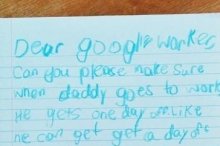 Dear google worker,
Can you please make sure
when daddy goes to work
He gets one day off. Like
he can get get a day off